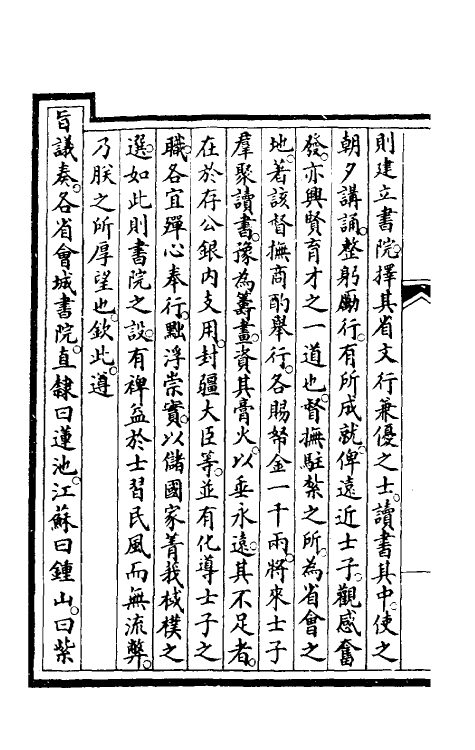 則建立書院。擇其省文行兼優之士。讀書其中。使之
朝夕講誦。整躬勵行。有所成就。俾遠近士子。觀感奮
發。亦興賢育才之一道也。督撫駐紮之所。為省會之
地。著該督撫商酌舉行。各賜帑金一千兩。將來士子
羣聚讀書。豫為籌畫。資其膏火。以垂永遠。其不足者。
在於存公銀内支用。封疆大臣等。並有化導士子之
職。各宜殫心奉行。黜浮崇實。以儲國家菁莪棫樸之
選。如此則書院之設。有裨益於士習民風而無流弊。
乃朕之所厚望也。欽此。遵
旨議奏。各省會城書院。直隸曰蓮池。江蘇曰鍾山。曰紫